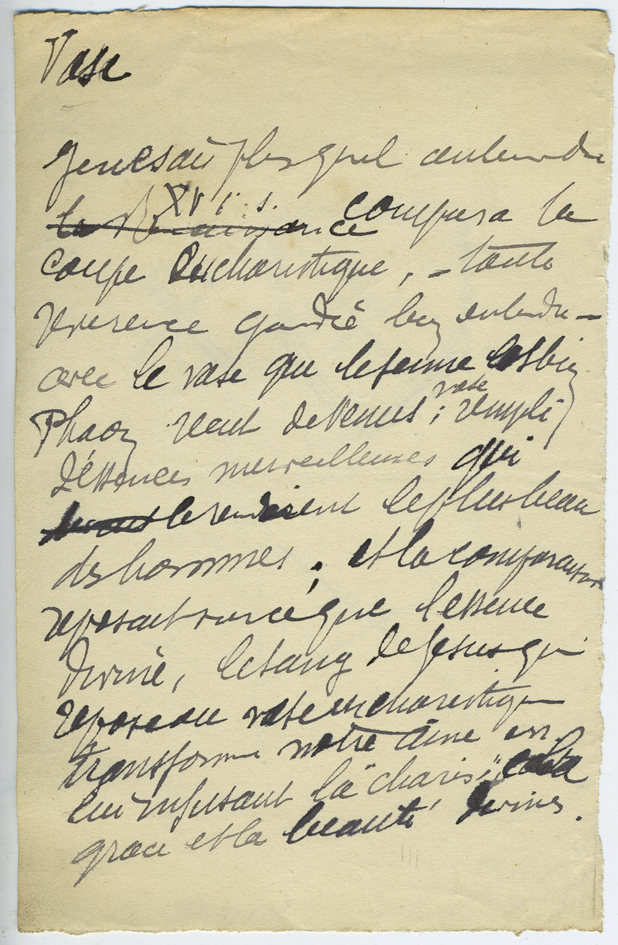 Vase
Je ne sais plus quel auteur du
XVI s.
la Renaissance compara la
coupe Eucharistique, – toute
reverence gardée bien entendu –
avec le vase que le jeune lesbien
vase
Phaon recut de Venus ; rempli
d'essences merveilleuses qui
le rendirent le plus beau
des hommes ; et la comparaison
reposait sur ce que l'essence
divine, le sang de Jesus qui
repose au vase eucharistique
transforme notre âme en
lui infusant la "charis", la
grace et la beauté divines.